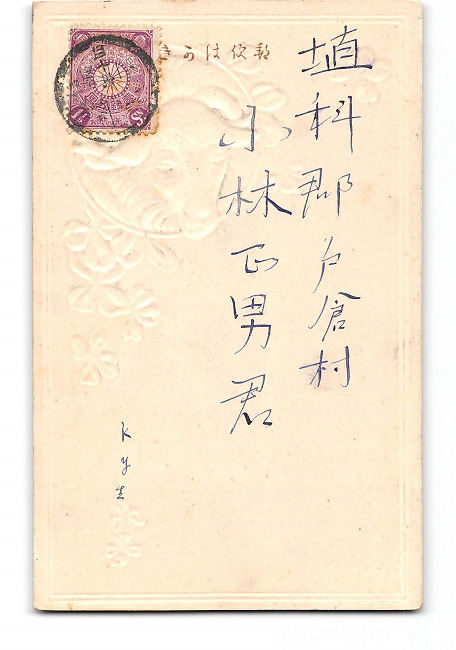 郵便はかき
埴科郡戸倉村
小林正男君
K y 生